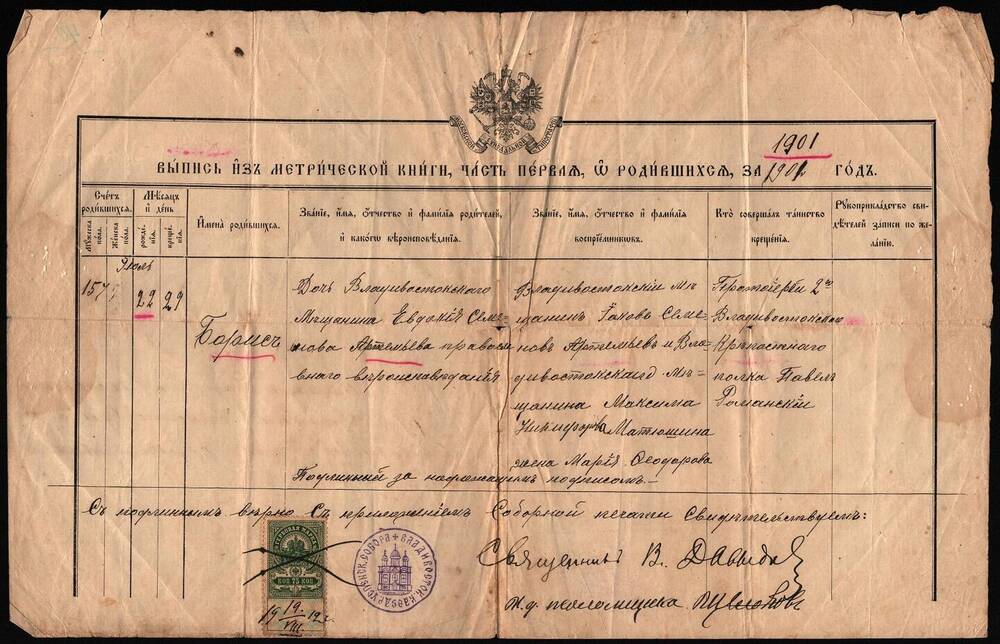 1901
ВЫПИСЬ ИЗЪ МЕТРИЧЕСКОЙ КНИГИ, ЧАСТЬ ПЕРВАЯ, Ѡ РОДИВШИХСЯ, ЗА 1901 ГОДЪ.
Счетъ родившихся.
Мужеска пола.
Женска пола.
Мѣсяцъ и день
рожденія.
крещенія.
Имена родившихся.
Званіе, имя, отчество и фамилія родителей,
и какого вѣроисповѣданія.
Званіе, имя, отчество и фамилія
воспріемниковъ.
Кто совершалъ таинство
крещенія.
Рукоприкладство сви-
дѣтелей записи по же-
ланію.
Іюль
157
22
29
Борисъ
Дочь Владивостокскаго
Мѣщанина Евдокія Семе-
нова Артемьева правосла-
внаго вѣроисповѣданія
Владивостокскій мѣ-
щанинъ Іаковъ Семе-
новъ Артемьевъ и Вла-
дивостокскаго мѣ-
щанина Максима
Никифорова Матюшина
жена Марія Ѳеодорова
Протоіерей 2го
Владивостокскаго
Крѣпостнаго
полка Павелъ
Романскій
Подлинный за надлежащимъ подписомъ
Съ подлиннымъ вѣрно Съ приложеніемъ Соборной печати Свидѣтельствуемъ:
Священникъ В. Давыдовъ
И.д. псаломщика
ГЕРБОВАЯ МАРКА
КОП 75 КОП
19 19/VIII 12 г.
ВЛАДИВОСТОК. КАѲЕДР. УСПЕНСК. СОБОРА